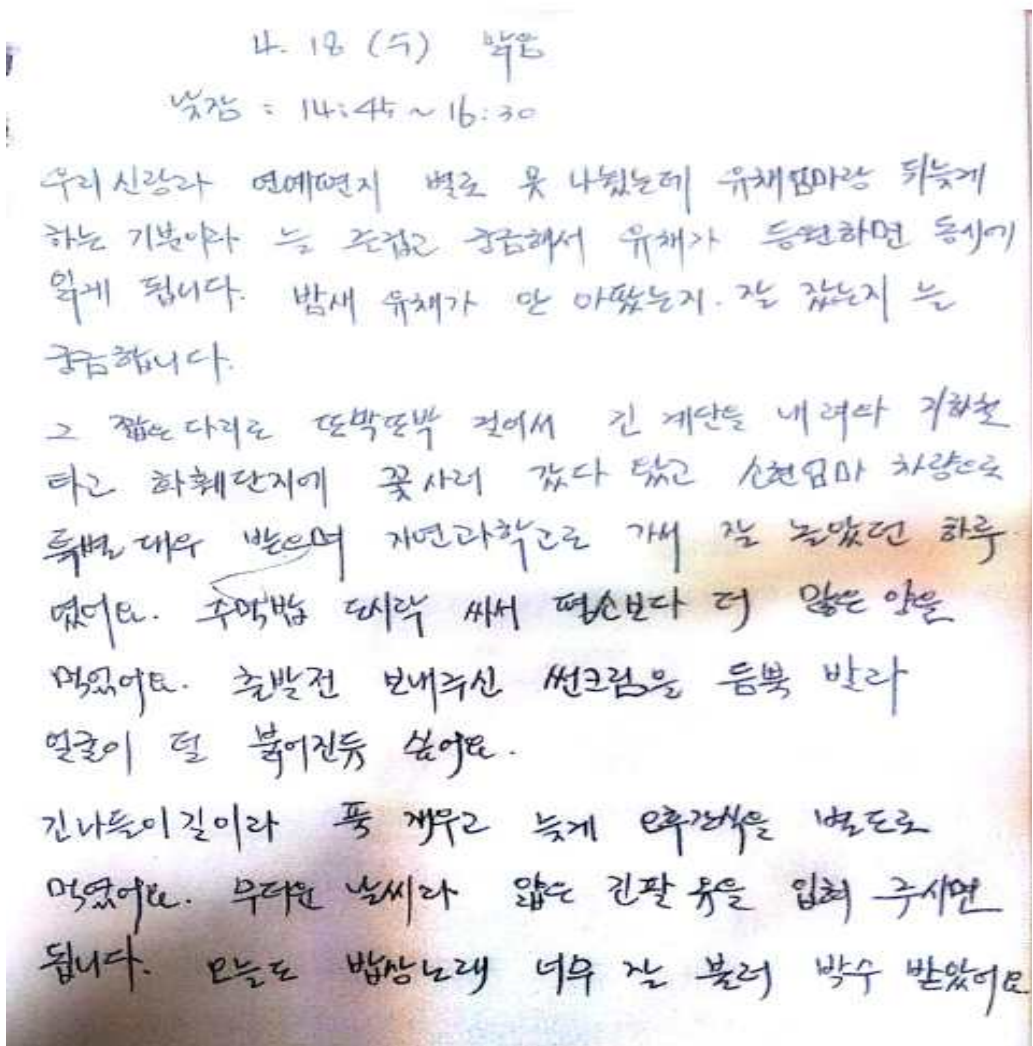 4. 18 (수) 맑음
낮잠 : 14:45 ~ 16:30
우리 신랑과 연예편지 별로 못 나눴는데 유채엄마랑 뒤늦게
하는 기분이라 늘 즐겁고 궁금해서 유채가 등원하면 동시에
읽게 됩니다. 밤새 유채가 안 아팠는지. 잘 잤는지 늘
궁금합니다.
그 짧은 다리로 또박또박 걸어서 긴 계단을 내려와 지하철
타고 화훼단지에 꽃사러 갔다 왔고 소현엄마 차량으로
특별대우 받으며 자연과학고로 가서 잘 놀았던 하루
였어요. 주먹밥 도시락 싸서 평소보다 더 많은 양을
먹었어요. 출발전 보내주신 썬크림을 듬뿍 발라
얼굴이 덜 붉어진듯 싶어요.
긴나들이길이라 푹 재우고 늦게 오후간식을 별도로
먹였어요. 무더운 날씨라 얇은 긴팔 옷을 입혀 주시면
됩니다. 오늘도 밥상노래 너무 잘 불러 박수 받았어요